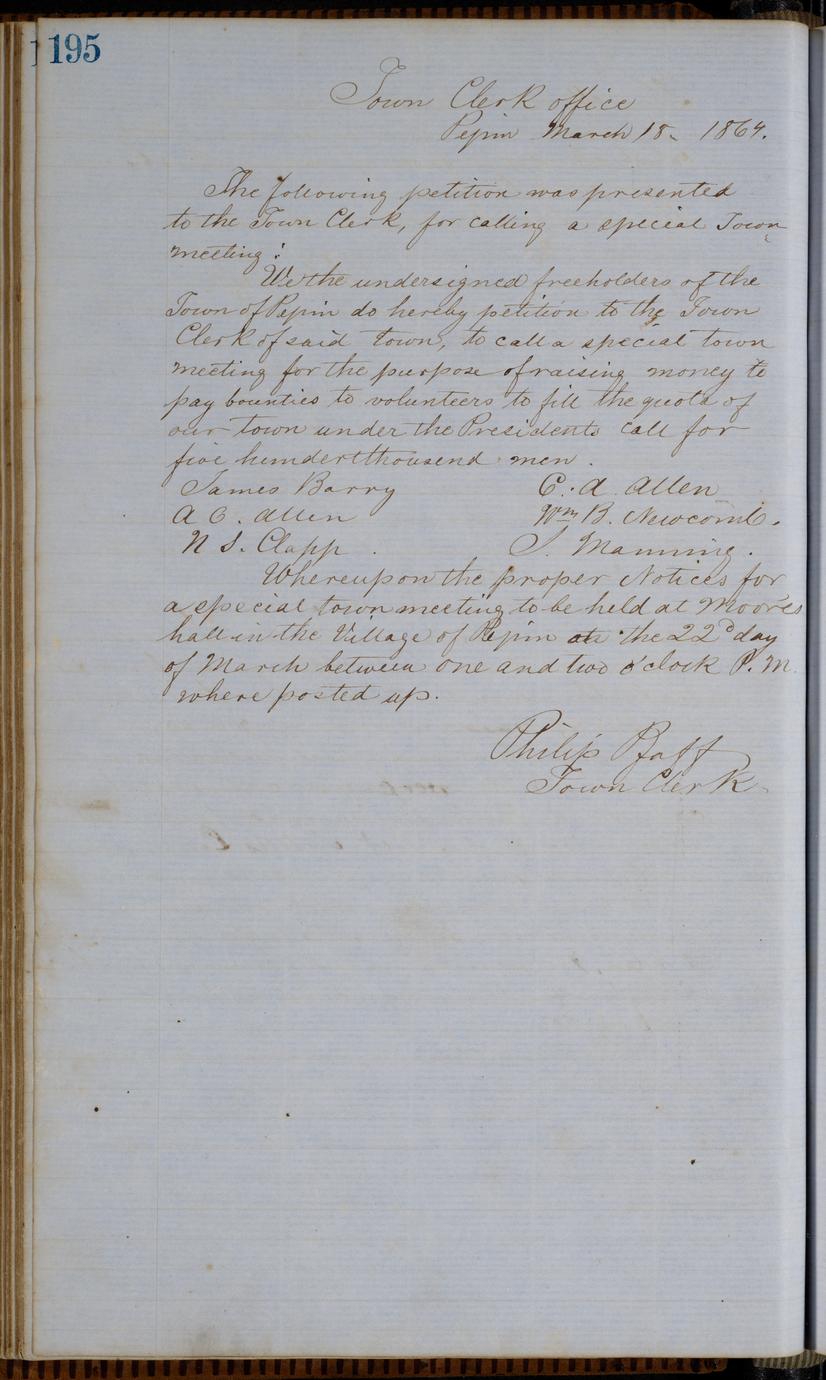 195
Town Clerk office
Pepin March 18. 1864.
The following petition was presented
to the Town Clerk, for calling a special Town
meeting:
We the undersigned freeholders of the
Town of Pepin do hereby petition to the Town
Clerk of said town, to call a special town
meeting for the purpose of raising money to
pay bounties to volunteers to fill the quota of
our town under the Presidents call for
five hundert thousend men.
James Barry C. A. Allen
A C. Allen Wm B. Newcomb.
N S. Clapp. S. Manning.
Whereupon the proper Notices for
a special town meeting to be held at Moores
hall in the Village of Pepin on the 22d day
of March between one and two o'clock P. M.
where posted up.
Philip Pfaff
Town Clerk